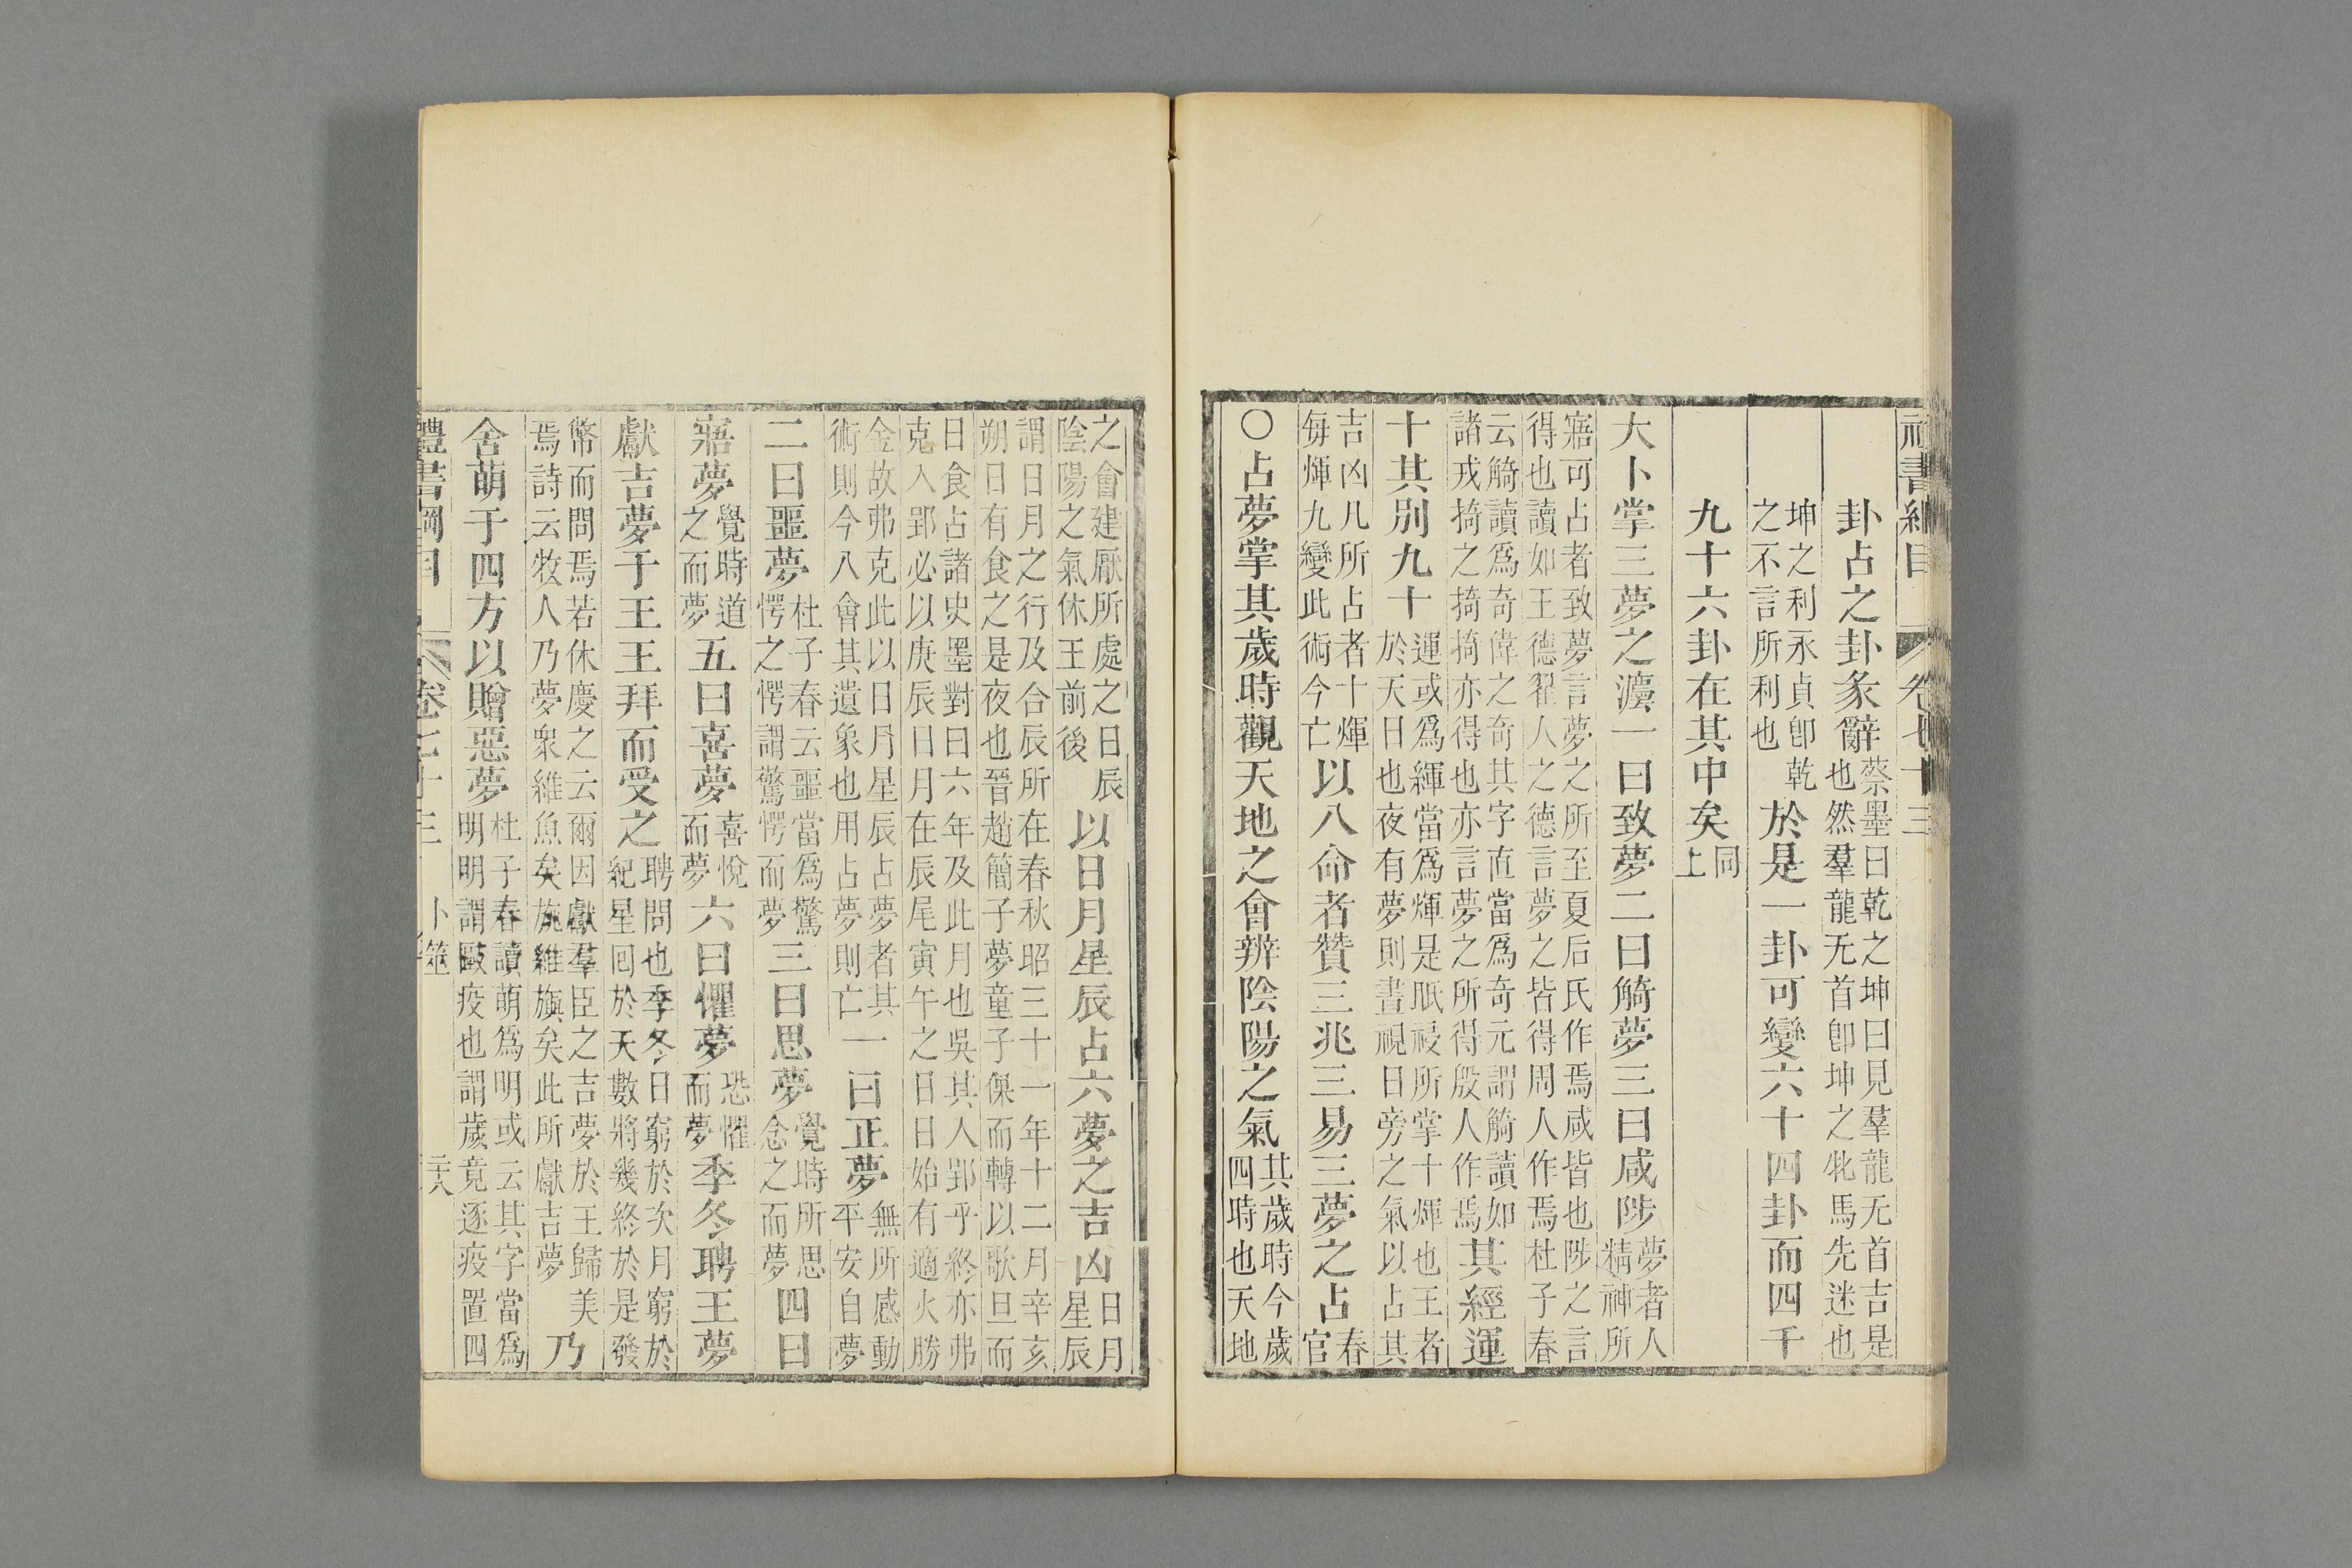 禮書綱目　卷七十三
卦占之卦彖辭蔡墨曰乾之坤曰見羣龍无首吉是也然羣龍无首卽坤之牝馬先迷也
坤之利永貞卽乾之不言所利也於是一卦可變六十四卦而四千
九十六卦在其中矣同上
大卜掌三夢之灋一曰致夢二曰觭夢三曰咸陟夢者人精神所
寤可占者致夢言夢之所至夏后氏作焉咸皆也陟之言得也讀如王德翟人之德言夢之皆得周人作焉杜子春
云觭讀爲奇偉之奇其字直當爲奇元謂觭讀如諸戎掎之掎掎亦得也亦言夢之所得殷人作焉其經運
十其別九十運或爲緷當爲煇是眂祲所掌十煇也王者於天日也夜有夢則晝視日旁之氣以占其
吉凶凡所占者十煇每煇九變此術今亡以八命者贊三兆三易三夢之占春官
○占夢掌其歲時觀天地之會辨陰陽之氣其歲時今歲四時也天地
之會建厭所處之日辰陰陽之氣休王前後以日月星辰占六夢之吉凶日月星辰
謂日月之行及合辰所在春秋昭三十一年十二月辛亥朔日有食之是夜也晉趙簡子夢童子倮而轉以歌旦而
日食占諸史墨對曰六年及此月也吳其人郢乎終亦弗克入郢必以庚辰日月在辰尾寅午之日日始有適火勝
金故弗克此以日月星辰占夢者其術則今八會其遺象也用占夢則亡一曰正夢無所感動平安自夢
二曰噩夢杜子春云噩當爲驚愕之愕謂驚愕而夢三曰思夢覺時所思念之而夢四曰
寤夢覺時道之而夢五曰喜夢喜悅而夢六曰懼夢恐懼而夢季冬聘王夢
獻吉夢于王王拜而受之聘問也季冬日窮於次月窮於紀星回於天數將幾終於是發
幣而問焉若休慶之云爾因獻羣臣之吉夢於王歸美焉詩云牧人乃夢衆維魚矣旐維旟矣此所獻吉夢乃
舍萌于四方以贈惡夢杜子春讀萌爲明或云其字當爲明明謂毆疫也謂歲竟逐疫置四
禮書綱目　卷七十三　卜筮　二十八